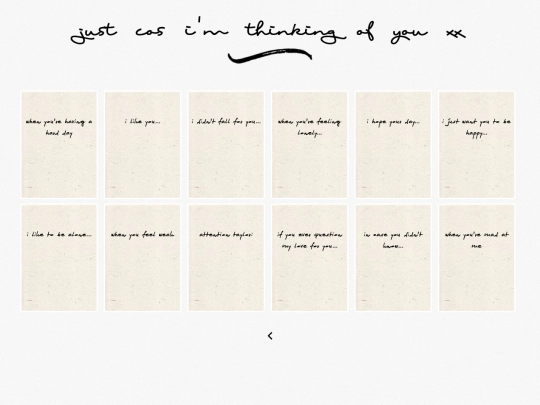 just cos i'm thinking of you xx
when you're having a
hard day
i like you...
i didn't fall for you...
when you're feeling
lonely...
i hope your day...
i just want you to be
happy...
i like to be alone...
when you feel weak
attention taylor!
if you ever question
my love for you...
in case you didn't
know...
when you're mad at
me
<